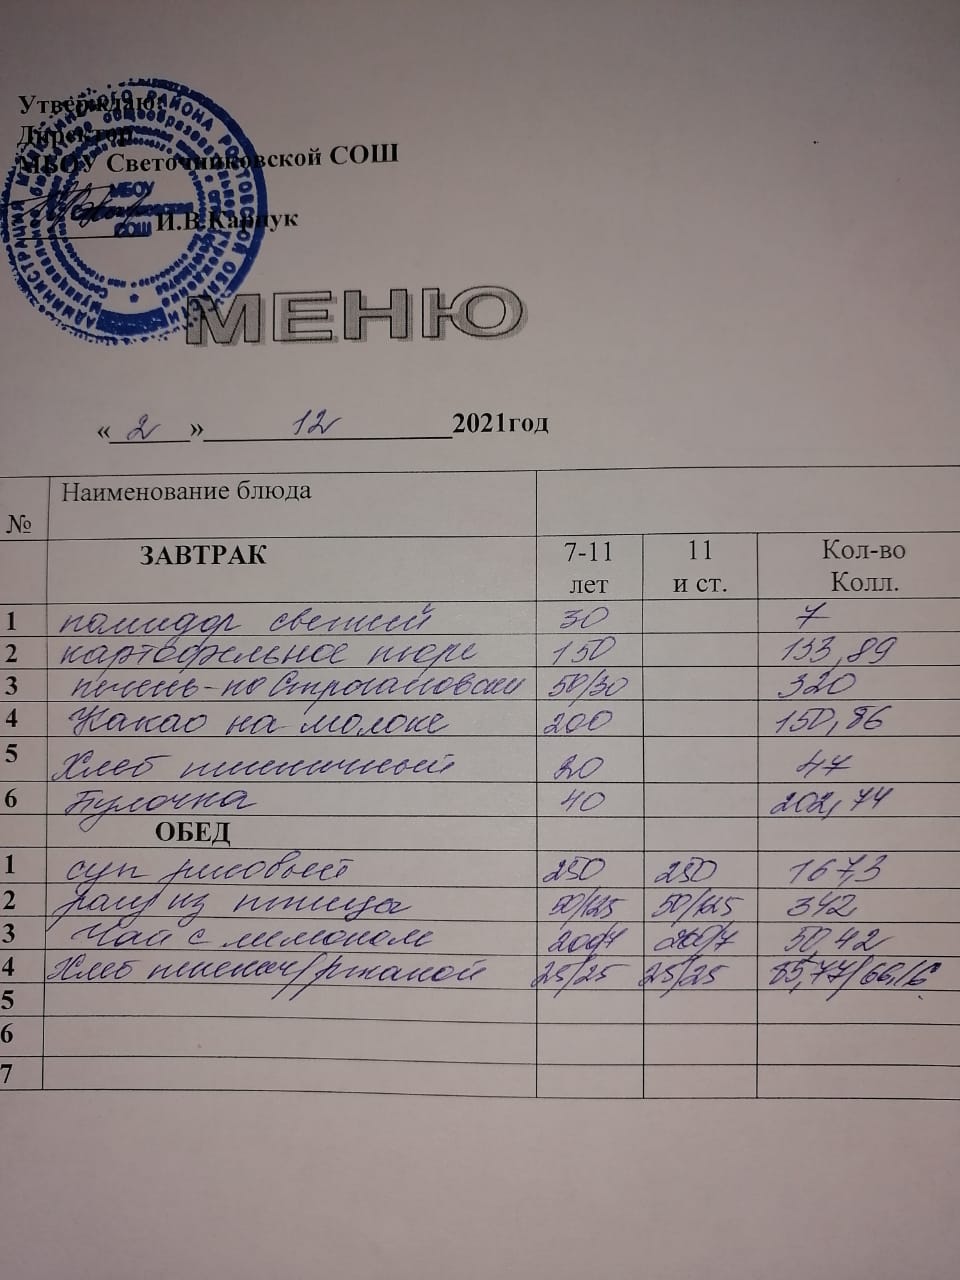 Утверждаю:
Директор
МБОУ Светочниковской СОШ
И.В.Карпук
МБОУ
СОШ
МЕНЮ
«2» 12 2021год
№ Наименование блюда
ЗАВТРАК 7-11 лет 11 и ст. Кол-во Колл.
1 помидор свежий 30 7
2 картофельное пюре 150 133,89
3 печень-по Строгановски 50/30 320
4 Какао на молоке 200 150,86
5 Хлеб пшеничный 20 47
6 Булочка 40 202,74
ОБЕД
1 суп рисовый 250 250 167,3
2 рагу из птицы 50/125 50/125 342
3 Чай с лимоном 200/7 200/7 50,42
4 Хлеб пшенич/ржаной 25/25 25/25 85,77/66,16
5
6
7